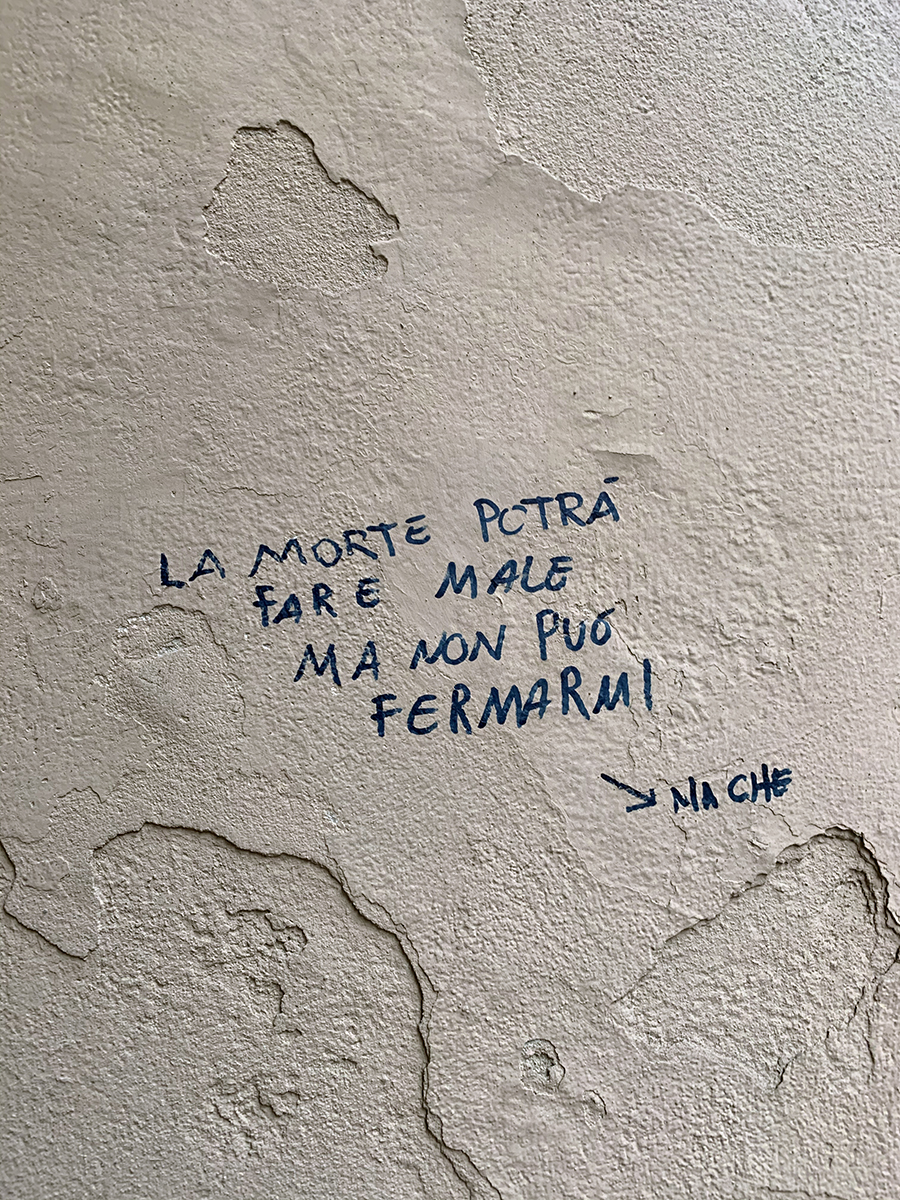 LA MORTE POTRÀ
FARE MALE
MA NON PUÒ
FERMARMI
↘ MA CHE